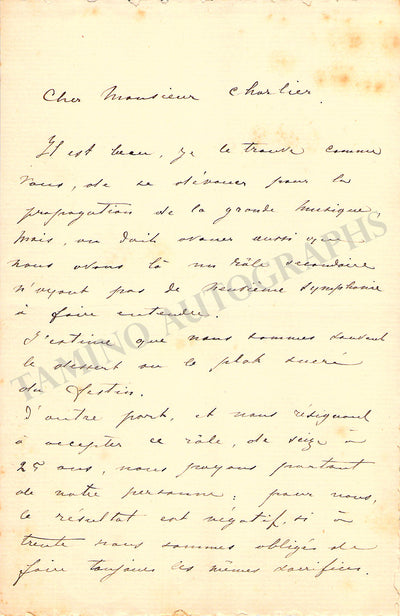 Cher Monsieur Charlier
Il est beau, je le trouve comme
vous, de se dévouer pour la
propagation de la grande musique,
mais, on doit avouer aussi que
nous avons là un rôle secondaire
n'ayant pas de neuvième symphonie
à faire entendre.
J'estime que nous sommes souvent
le dessert ou le plat sucré
du festin.
D'autre part, et nous résignant
à accepter ce rôle, de seize à
25 ans, nous payons pourtant
de notre personne; pour nous,
le résultat est négatif, si à
trente nous sommes obligés de
faire toujours les mêmes sacrifices.
TAMINO AUTOGRAPHS